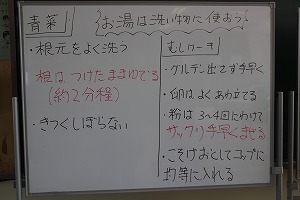 お湯は洗い物に使おう!
青菜
・根元をよく洗う
根はつけたままゆでる
(約2分程)
・きつくしぼらない
むしケーキ
・グルテン出さず手早く
・卵はよくあわ立てる
・粉は3~4回にわけて
サックリ手早くまぜる
・こそげおとしてコップに
均等に入れる